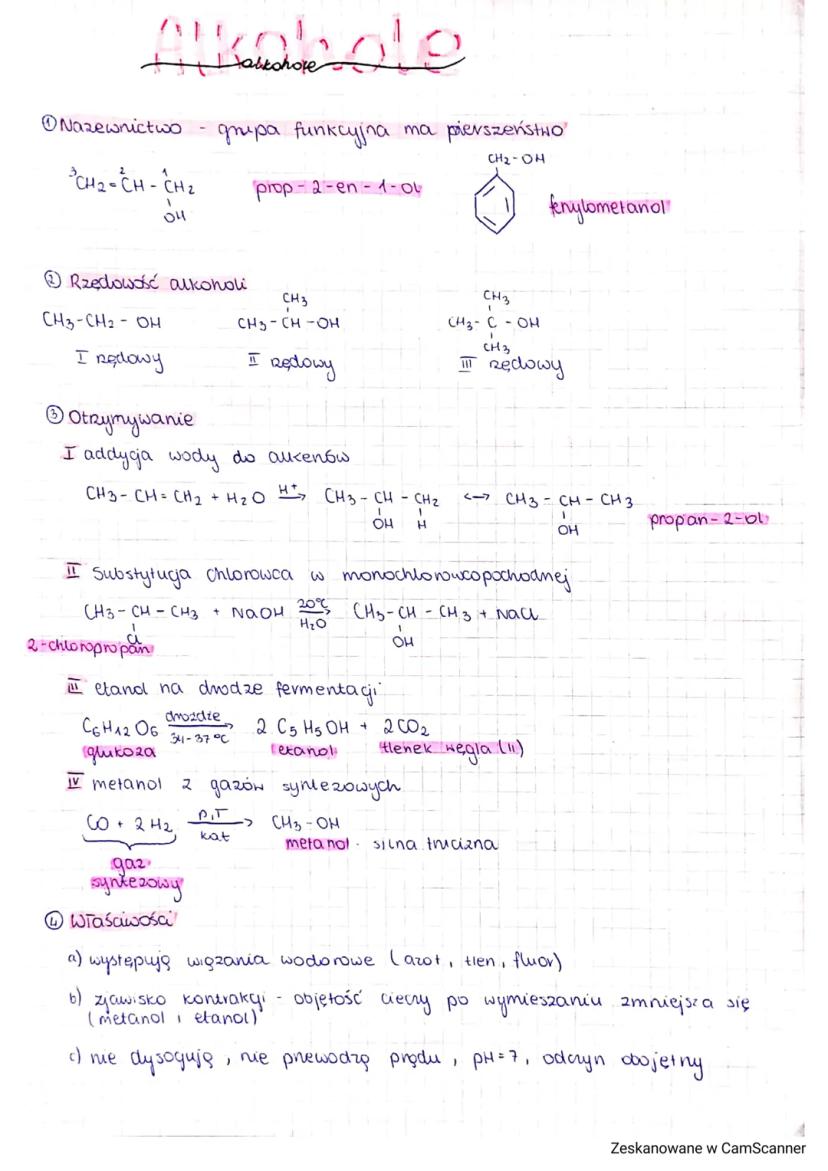 Alkohole
alkohole
① Nazewnictwo - grupa funkcyjna ma pierszeństwo
CH2 - OH
³CH2 = ²CH - ¹CH2
OH
prop - 2 - en - 1 - ol
fenylometanol
② Rzędowość alkoholi
CH3 - CH2 - OH
I rzędowy
CH3
CH3 - CH - OH
II rzędowy
CH3
CH3 - C - OH
CH3
III rzędowy
③ Otrzymywanie
I addycja wody do alkenów
CH3 - CH = CH2 + H2O H+ → CH3 - CH - CH2 ↔ CH3 - CH - CH3
OH H OH
propan - 2 - ol
II Substytucja chlorowca w monochlorowcopochodnej
CH3 - CH - CH3 + NaOH 20°C → H2O CH3 - CH - CH3 + NaCl
Cl OH
2-chloropropan
III etanol na drodze fermentacji
C6H12O6 drożdże → 34-37°C 2 C5H5OH + 2CO2
glukoza etanol tlenek węgla (II)
IV metanol z gazów syntezowych
CO + 2H2 p,T → kat CH3 - OH
metanol - silna trucizna
gaz
syntezowy
④ Właściwości
a) występują wiązania wodorowe (azot, tlen, fluor)
b) zjawisko kontrakcji - objętość cieczy po wymieszaniu zmniejsza się
(metanol i etanol)
c) nie dysocjują, nie przewodzą prądu, pH=7, odczyn obojętny
Zeskanowane w CamScanner